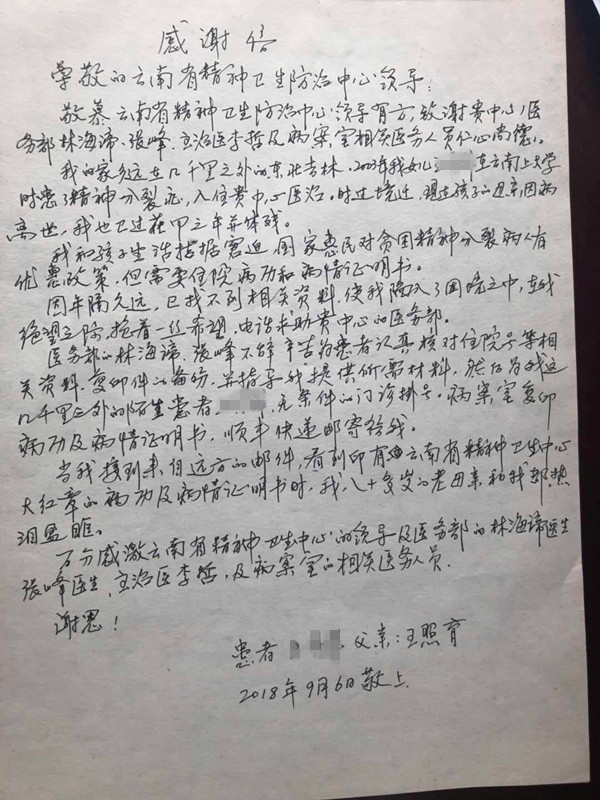 感谢信
尊敬的云南省精神卫生防治中心领导：
敬慕云南省精神卫生防治中心领导有方，致谢贵中心医
务部林海谛、张峰、主治医李哲及病案室相关医务人员仁心尚德。
我的家乡远在几千里之外的东北吉林。2003年我女儿在云南上大学
时患了精神分裂症，入住贵中心医治。时过境迁，现在孩子的母亲因病
离世，我也已过花甲三年并体残。
我和孩子生活拮据窘迫，国家惠民对贫困精神分裂病人有
优惠政策，但需要住院病历和病情证明书。
因年隔久远，已找不到相关资料，使我陷入了困境之中，在我
绝望之际，抱着一丝希望，电话求助贵中心的医务部。
医务部的林海谛、张峰不辞辛苦为患者认真核对住院号等相
关资料，复印件的备份，并指导我提供所需材料，然后为我这
几千里之外的陌生患者，无条件的门诊挂号。病案室复印
病历及病情证明书，顺丰快递邮寄给我。
当我接到来自远方的邮件，看到印有云南省精神卫生中心
大红章的病历及病情证明书时，我八十多岁的老母亲和我都热
泪盈眶。
万分感激云南省精神卫生中心的领导及医务部的林海谛医生
张峰医生、主治医李哲，及病案室的相关医务人员.
谢恩！
患者 父亲：王照育
2018年9月6日敬上